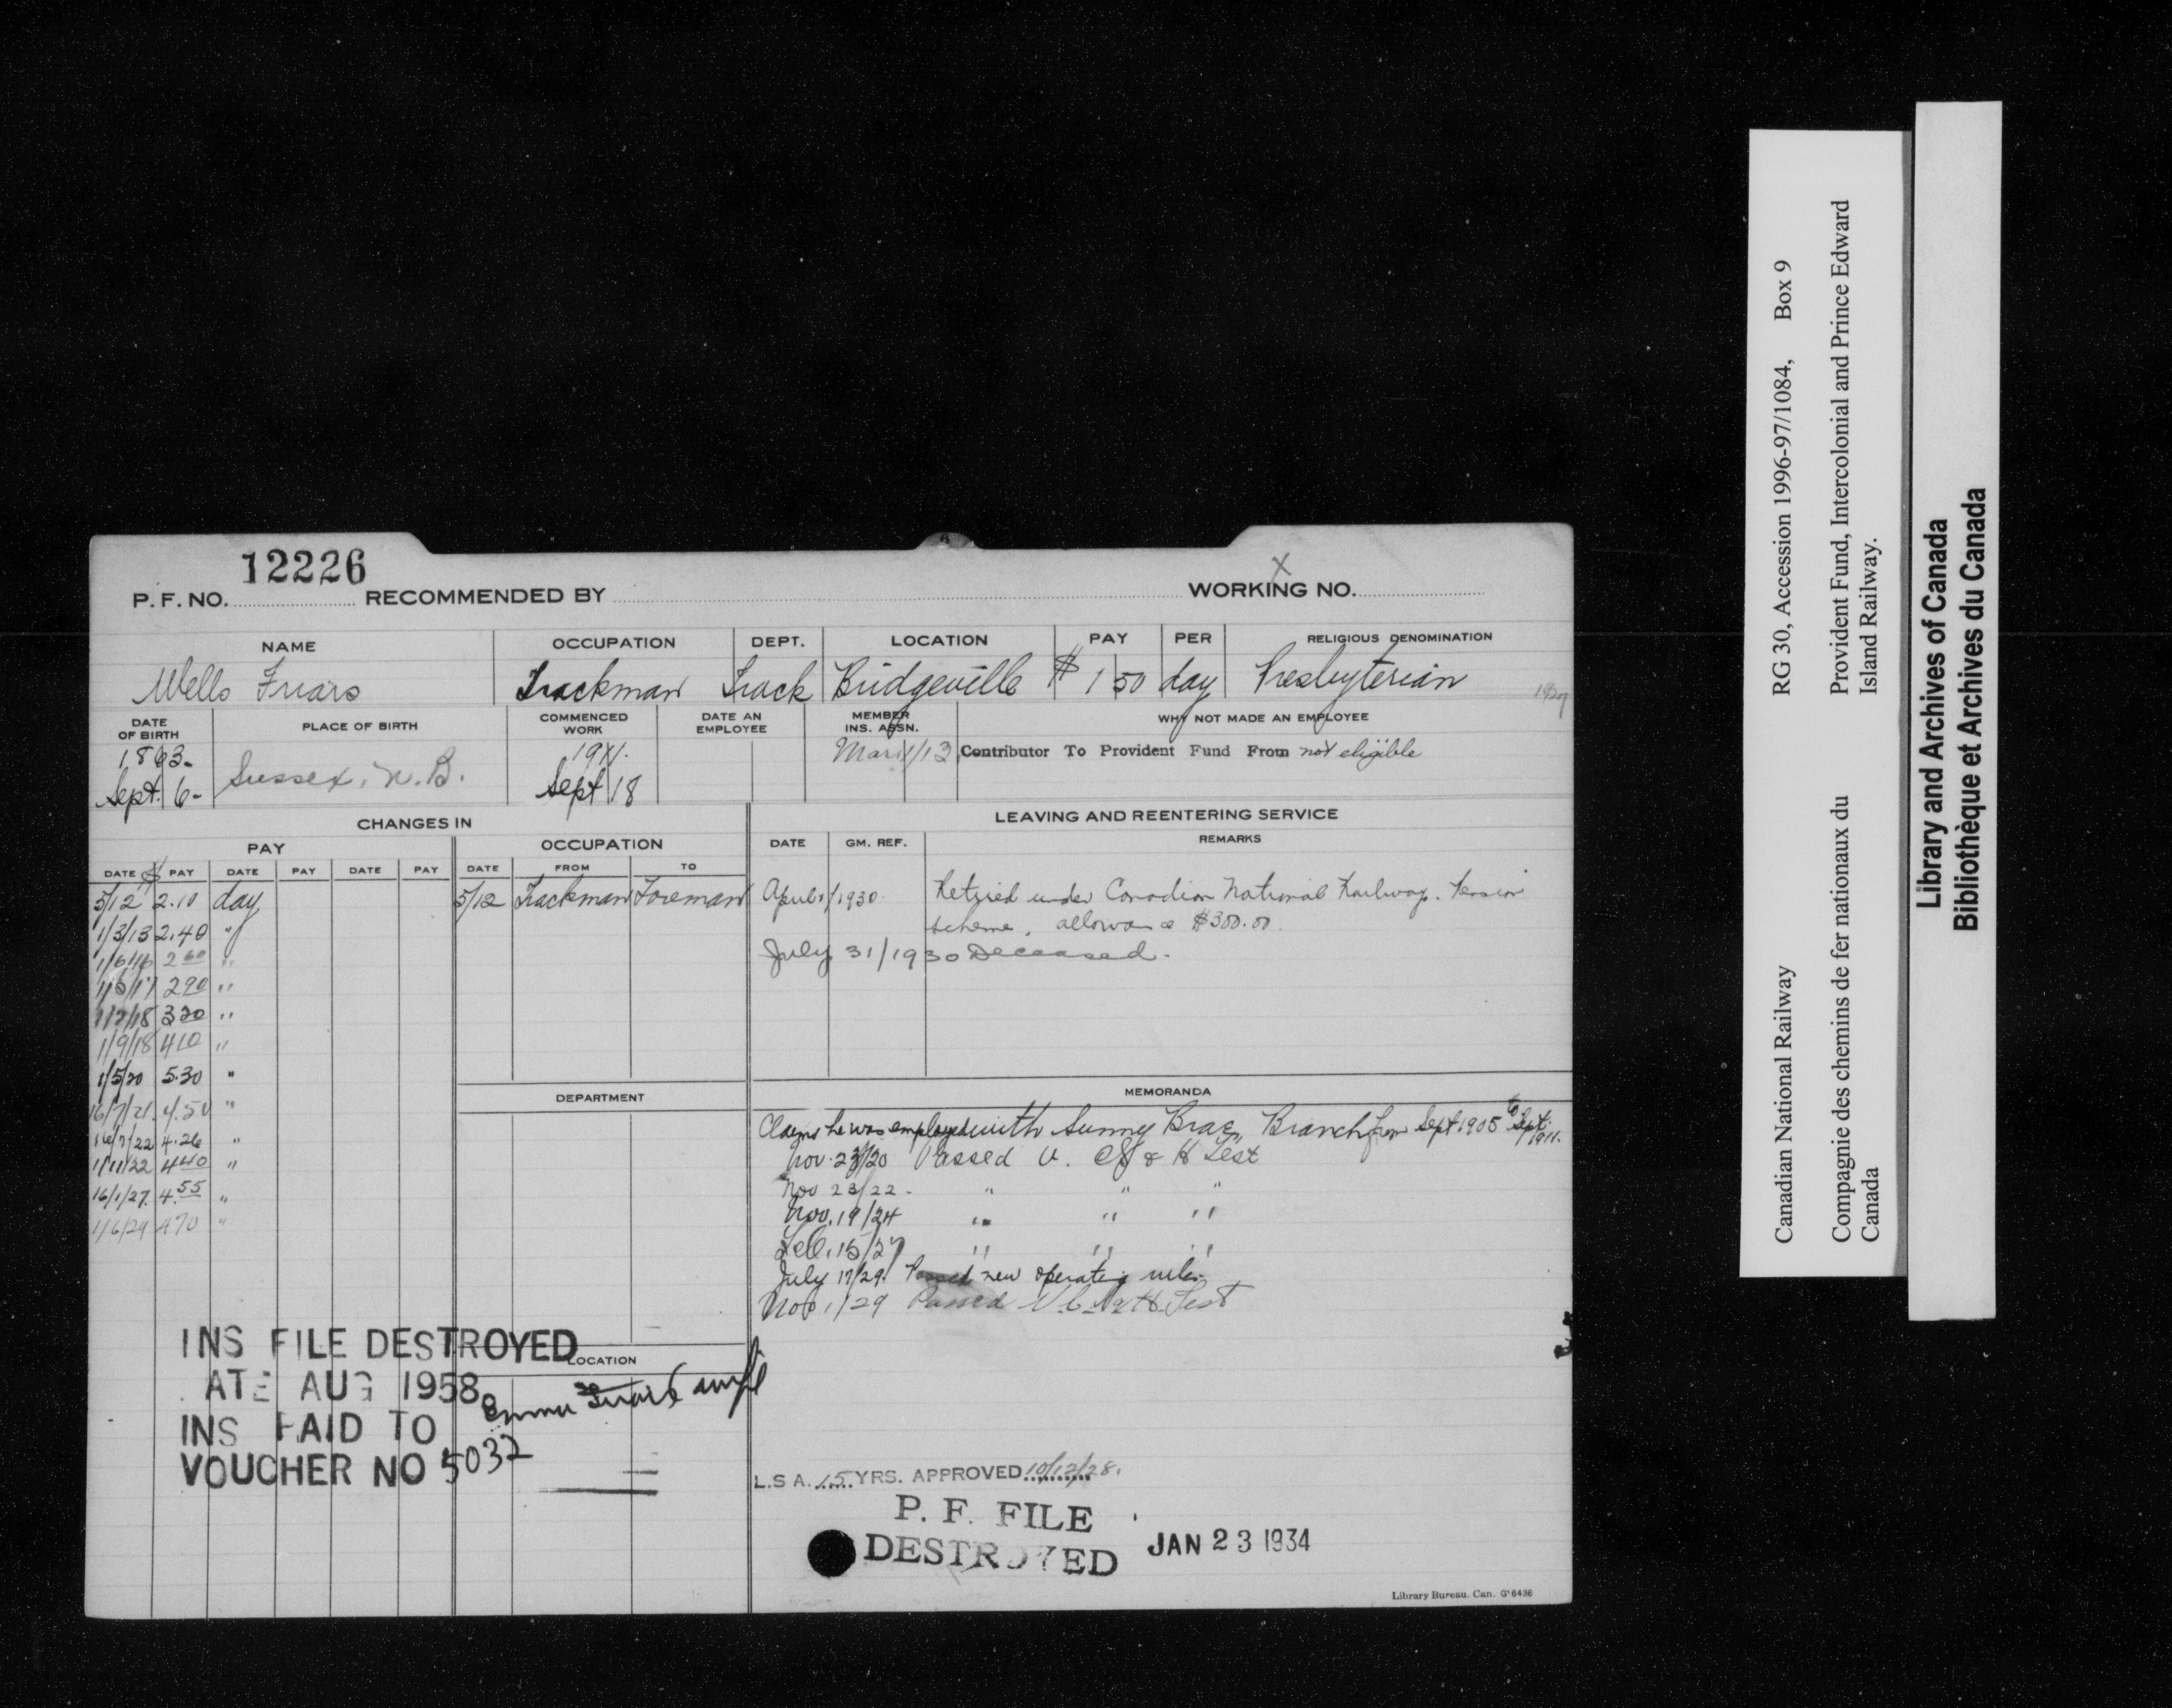 12226
P. F. NO. RECOMMENDED BY WORKING NO.
X
NAME OCCUPATION DEPT. LOCATION PAY PER RELIGIOUS DENOMINATION
Wells Friars Trackman Track Bridgeville $ 1 50 day Presbyterian
1927
DATE OF BIRTH PLACE OF BIRTH COMMENCED WORK DATE AN EMPLOYEE MEMBER INS. ASSN. WHY NOT MADE AN EMPLOYEE
1863. Sussex, N.B. 1911. Mar 1/13 Contributor To Provident Fund From not eligible
Sept. 6- Sept 18
CHANGES IN
PAY OCCUPATION
DATE $ PAY DATE PAY DATE PAY DATE FROM TO
5/12 2.10 day 5/12 Trackman Foreman
1/3/13 2.40 "
1/6/16 2 60 "
1/5/17 2 90 "
1/2/18 3 20 "
1/9/18 4 10 "
1/5/20 5.30 "
16/7/21 4.50 "
16/7/22 4.26 "
1/11/22 4 40 "
16/1/27. 4.55 "
1/6/29 4 70 "
DEPARTMENT
LOCATION
INS FILE DESTROYED
ATE AUG 1958
INS PAID TO Emma Friars wife
VOUCHER NO 5032
LEAVING AND REENTERING SERVICE
DATE GM. REF. REMARKS
April 1/1930. Retired under Canadian National Railway. Pension
scheme, allowance $300.00.
July 31/1930 Deceased.
MEMORANDA
Claims he was employed with Sunny Brae Branch from Sept. 1905 to Sept. 1911.
Nov. 23/20 Passed V. C. & H Test
Nov 23/22. " " "
Nov. 19/24 " " "
Feb. 15/27 " " "
July 17/29. Passed new operating rules
Nov 1/29 Passed V. C. & H. Test
L.S A. 15 YRS. APPROVED 10/12/28.
P. F. FILE
DESTROYED JAN 23 1934
Library Bureau. Can. G'6436
Canadian National Railway RG 30, Accession 1996-97/1084, Box 9
Compagnie des chemins de fer nationaux du Canada
Provident Fund, Intercolonial and Prince Edward Island Railway.
Library and Archives of Canada
Bibliothèque et Archives du Canada